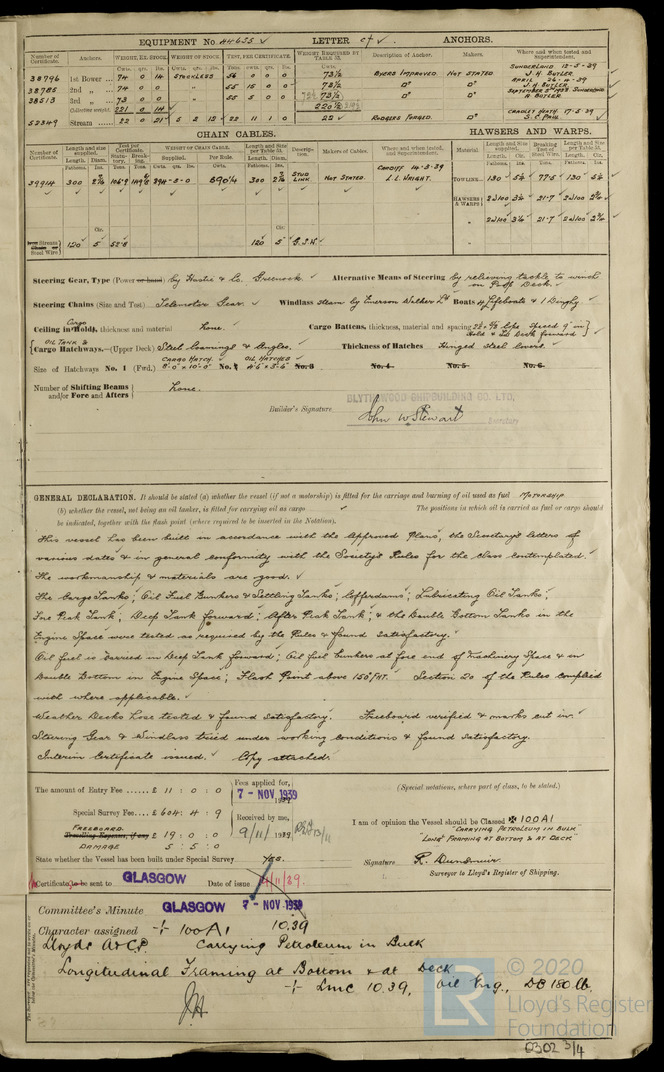 EQUIPMENT No. 44635 ✓ LETTER ct ✓ ANCHORS.
Number of Certificate. Anchors. WEIGHT, EX. STOCK. WEIGHT OF STOCK. TEST, PER CERTIFICATE. WEIGHT REQUIRED BY TABLE 53. Description of Anchor. Makers. Where and when tested and Superintendent.
Cwts. qrs. lbs. Cwts. qrs. lbs. Tons. cwts. qrs. lbs. Cwts.
38796 1st Bower 74 0 14 STOCKLESS 56 0 0 0 73½ BYERS IMPROVED NOT STATED SUNDERLAND 12-5-39 J. H. BUTLER
38785 2nd „ 74 0 0 „ 55 15 0 0 73½ Dº Dº APRIL 26-4-39 J. H. BUTLER
38513 3rd „ 73 0 0 „ 55 5 0 0 73½ Dº Dº SUNDERLAND H. BUTLER
Collective weight. 221 0 14 220½
52349 Stream 22 0 21 5 2 12 ✓ 22 11 1 0 22 ✓ RODGERS FORGED Dº CRADLEY HEATH 17-5-39 S. C. PAUL
CHAIN CABLES.
HAWSERS AND WARPS.
Number of Certificate. Length and size supplied. Test per Certificate. WEIGHT OF CHAIN CABLE. Length and size per Table 53. Description. Makers of Cables. Where and when tested, and Superintendent. Material. Length and Size supplied. Breaking Test of Steel Wire. Length and Size per Table 53.
Fathoms. Diam. Statutory. Breaking. Supplied. Per Rule. Length. Diam.
39914 300 894-5-0 890¼ 300 STUD LINK NOT STATED CARDIFF 14-3-39 L. L. WRIGHT. TOWLING 130 5½ 77·5 ✓ 130 5½
HAWSERS & WARPS 2@100 3½ 21·7 2@100 2¾
„ 2@100 3½ 21·7 2@100 2¾
Stream Steel Wire 120 5 52·8 120 5 ✓
Steering Gear, Type (Power or hand) by Hastie & Co. Greenock. ✓ Alternative Means of Steering by relieving tackle to winch on Poop Deck.
Steering Chains (Size and Test) Telemotor Gear. ✓ Windlass steam by Emerson Walker Ltd Boats 4 Lifeboats & 1 Dinghy
Ceiling in Cargo Holds, thickness and material None. ✓ Cargo Battens, thickness, material and spacing spaced 9" in Hold & Deck forward
OIL TANK &
Cargo Hatchways.—(Upper Deck) Steel Coamings & Angles. ✓ Thickness of Hatches Hinged steel covers. ✓
CARGO HATCH ✓ OIL HATCHES ✓
Size of Hatchways No. 1 (Fwd.) 8'-0" × 10'-0" No. 2 4'-6" × 3'-6" No. 3 No. 4 No. 5 No. 6
Number of Shifting Beams and/or Fore and Afters None. ✓
BLYTHSWOOD SHIPBUILDING CO. LTD.
Builder's Signature John W Stewart
Secretary
GENERAL DECLARATION. It should be stated (a) whether the vessel (if not a motorship) is fitted for the carriage and burning of oil used as fuel MOTORSHIP
(b) whether the vessel, not being an oil tanker, is fitted for carrying oil as cargo ✓ The positions in which oil is carried as fuel or cargo should
be indicated, together with the flash point (where required to be inserted in the Notation).
This vessel has been built in accordance with the Approved Plans, the Secretary's letters of
various dates & in general conformity with the Society's Rules for the class contemplated.
The workmanship & materials are good. ✓
The Cargo Tanks; Oil Fuel Bunkers & Settling Tanks; Cofferdams; Lubricating Oil Tanks;
Fore Peak Tank; Deep Tank forward; After Peak Tank; & the Double Bottom Tanks in the
Engine Space were tested as required by the Rules & found satisfactory. ✓
Oil fuel is carried in Deep Tank forward; Oil fuel bunkers at fore end of Machinery Space & in
Double Bottom in Engine Space; Flash Point above 150°FHT. Section 20 of the Rules complied
with where applicable. ✓
Weather Decks hose tested & found satisfactory. Freeboard verified & marks cut in.
Steering Gear & Windlass tried under working conditions & found satisfactory.
Interim Certificate issued. ✓ Copy attached.
The amount of Entry Fee £ 11 : 0 : 0
Special Survey Fee £ 604 : 4 : 9
FREEBOARD
Travelling Expenses, if any £ 19 : 0 : 0
DAMAGE 5 : 5 : 0
Fees applied for,
7 - NOV 1939
Received by me,
9/11/1939
(Special notations, where part of class, to be stated.)
I am of opinion the Vessel should be Classed ✠ 100A1
"CARRYING PETROLEUM IN BULK"
"LONGL FRAMING AT BOTTOM & AT DECK"
State whether the Vessel has been built under Special Survey Yes.
Signature R. Dunsmuir
Surveyor to Lloyd's Register of Shipping.
Certificate to be sent to GLASGOW Date of issue 9/11/39.
Committee's Minute GLASGOW 7 - NOV 1939
Character assigned + 100A1 10.39
Lloyds A&CP. Carrying Petroleum in Bulk
Longitudinal Framing at Bottom & at Deck
+ LMC 10.39, Oil Eng., DB 180 lb.
JH
© 2020
Lloyd's Register
Foundation
LR
0302 3/4